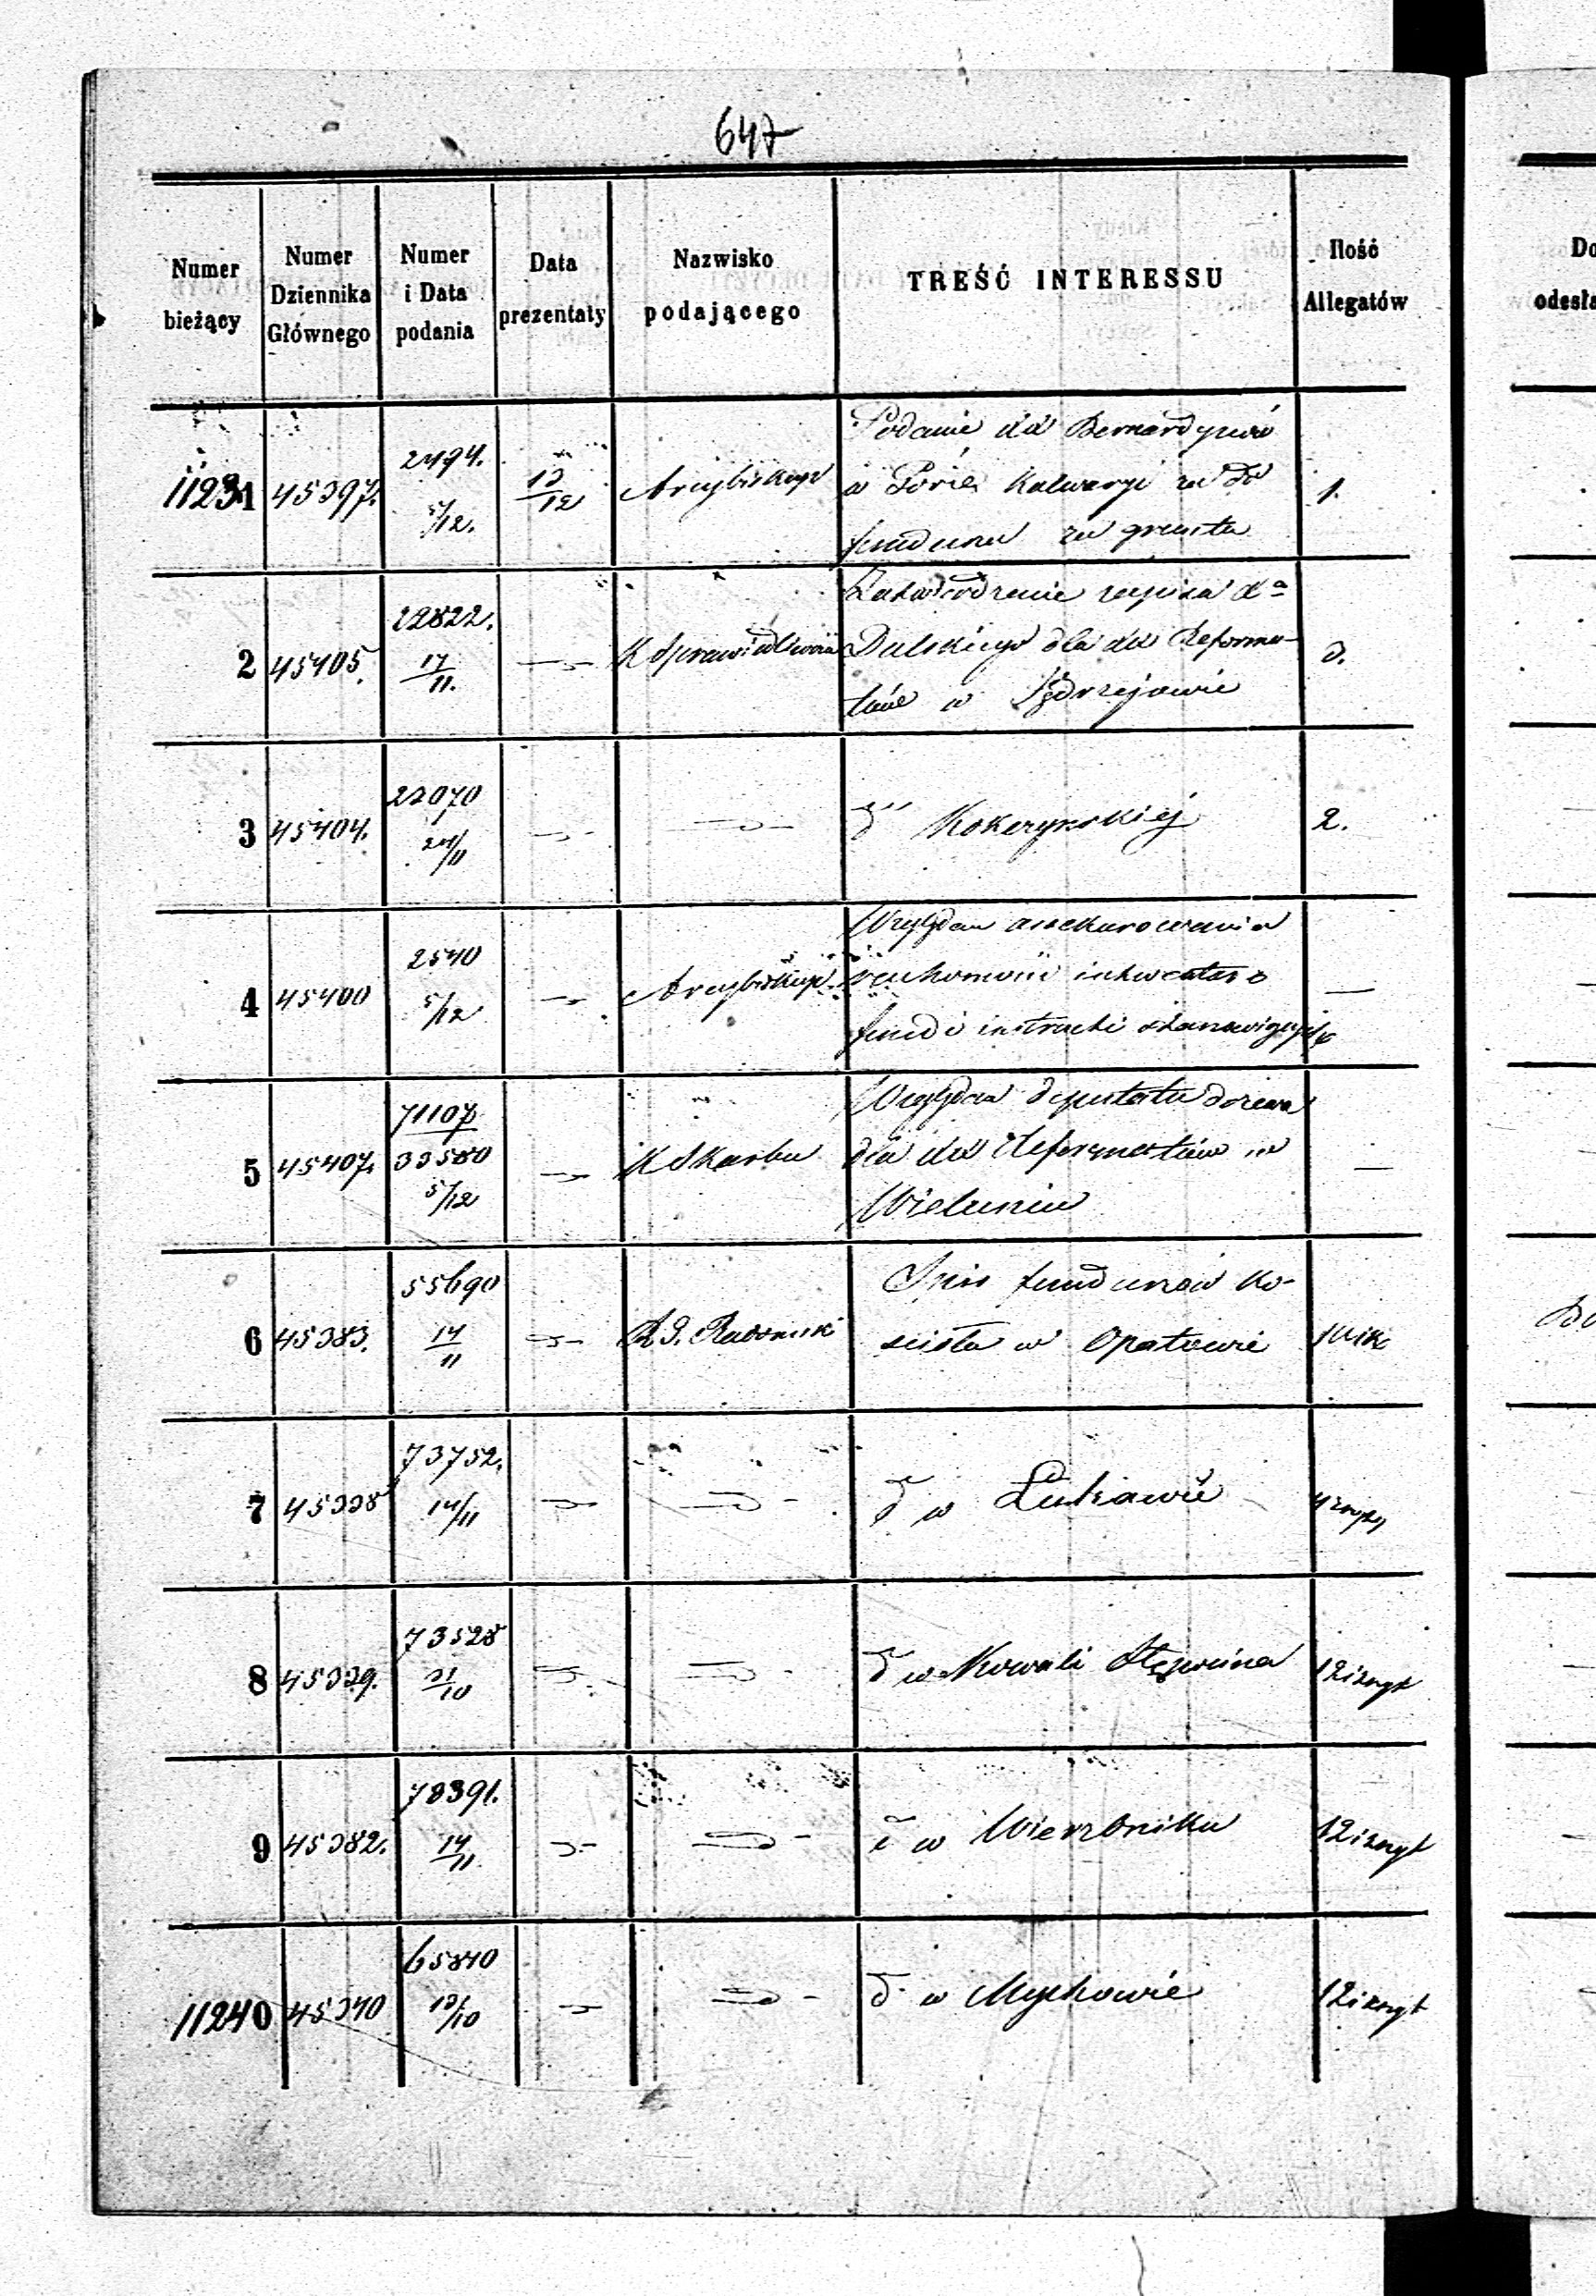 647
Numer bieżący
Numer Dziennika Głównego
Numer i Data podania
Data prezentaty
Nazwisko podającego
TREŚĆ INTERESSU
Ilość Allegatów
11231 45397. 2494. 5/12. 13/12 Arcybiskup 1.
Podanie XX Bernardynów
w Górze Kalwaryi
funduszu za grunta
2 45405. 17/11. K Sprawiedliwości 3.
Zatwierdzenie zapisu Xa
dla XX Reforma-
tów w Jędrzejowie
3 45404. 22070 24/11 2.
4 45400 2540 5/12 Arcybiskup —
Względem assekurowania
ruchomości inwentarzo
fund i instructi
5 45407. 71107 33580 5/12 K Skarbu —
Względem deputatu drzewa
dla XX Reformatów w
Wieluniu
6 45383. 55690 14/11 R G. Radomski
Spis funduszów ko-
scioła w Opatowie
7 45338 73752. 14/11 d° w Łukawie
8 45339. 73528 31/10 d° w Kowali Stępocina 12 i zeszyt
9 45382. 78391. 14/11 d° w Wierzbniku 12 i zeszyt
11240 45340 65840 13/10 d° w Mychowie 12 i zeszyt
Do
odesła